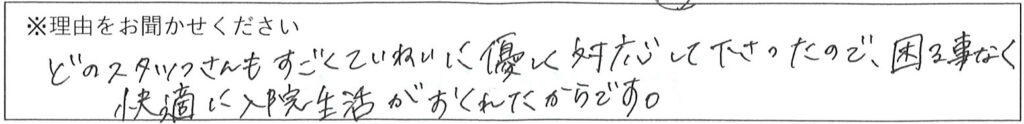 ※理由をお聞かせください
どのスタッフさんもすごくていねいに優しく対応して下さったので、困る事なく
快適に入院生活がおくれたからです。